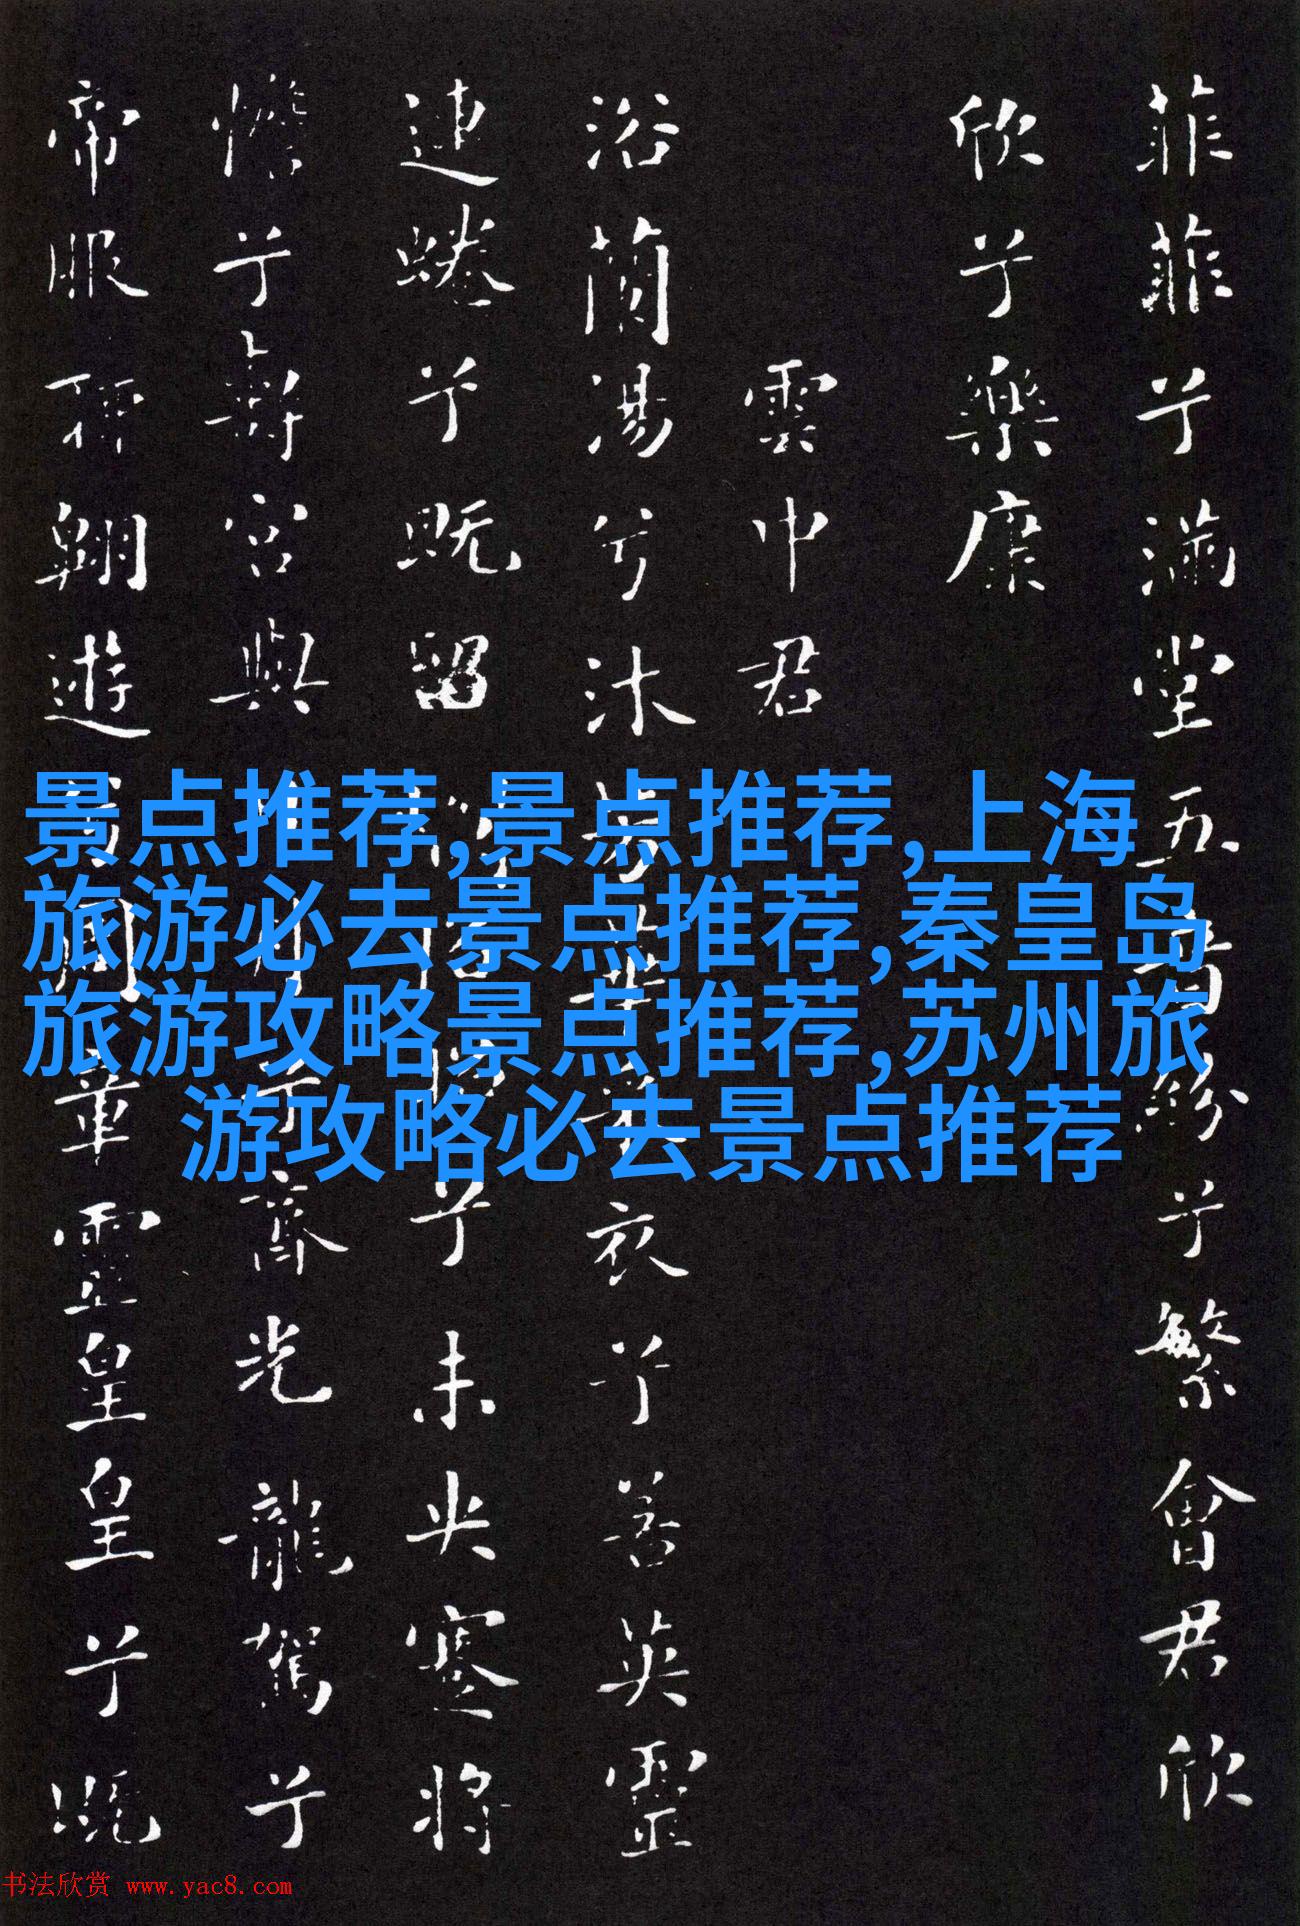 菲菲兮滿堂五音紛兮繁會君欣
欣兮樂康
雲中君
浴蘭湯兮沐芳華采衣兮若英靈
連蜷兮既留爛昭昭兮未央蹇將
憺兮壽宮與日月兮齊光龍駕兮
帝服聊翱遊周章靈皇皇兮既
景点推荐,景点推荐,上海
旅游必去景点推荐,秦皇岛
旅游攻略景点推荐,苏州旅
游攻略必去景点推荐
书法欣赏 www.yac8.com